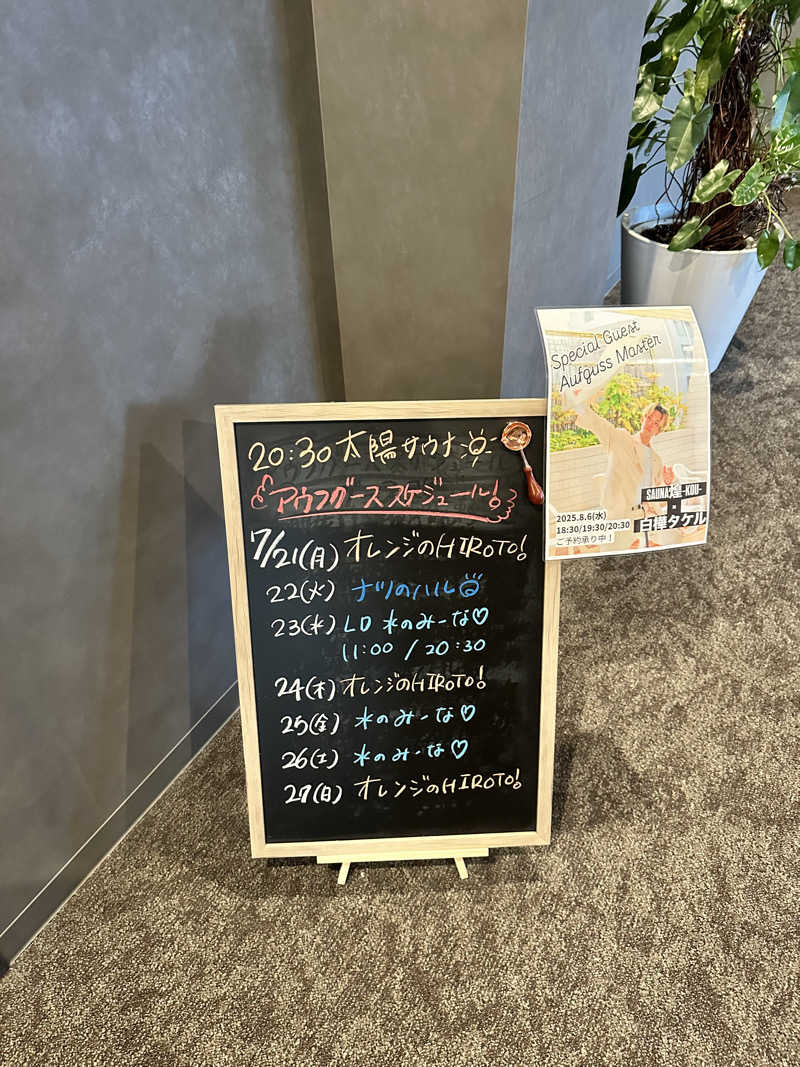 20:30 太陽サウナ
アウフグーススケジュール!
7/21(月) オレンジのHIROTO!
22(火) ナツのハル
23(水) LD 水のみーな♡
11:00 / 20:30
24(木) オレンジのHIROTO!
25(金) 水のみーな♡
26(土) 水のみーな♡
27(日) オレンジのHIROTO!
Special Guest
Aufguss Master
SAUNA煌-KOU-
×
白樺タケル
2025.8.6(水)
18:30/19:30/20:30
ご予約承り中！